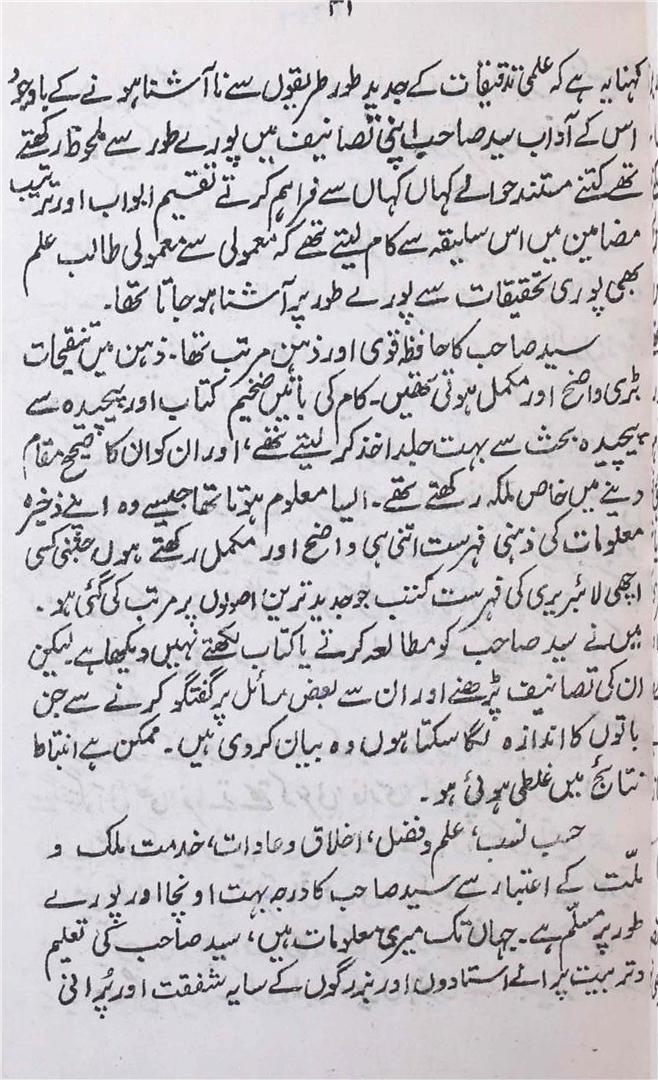 ۳۱
کہنا یہ ہے کہ علمی تدقیقات کے جدید طور طریقوں سے ناآشنا ہونے کے باوجود
اس کے آداب سید صاحب اپنی تصانیف میں پورے طور سے ملحوظ رکھتے
تھے کتنے مستند حوالے کہاں کہاں سے فراہم کرتے تقسیم ابواب اور ترتیب
مضامین میں اس سلیقہ سے کام لیتے تھے کہ معمولی سے معمولی طالب علم
بھی پوری تحقیقات سے پورے طور پر آشنا ہو جاتا تھا۔
سید صاحب کا حافظہ قوی اور ذہن مرتب تھا۔ ذہن میں تنقیحات
بڑی واضح اور مکمل ہوتی تھیں۔ کام کی باتیں ضخیم کتاب اور پیچیدہ سے
پیچیدہ بحث سے بہت جلد اخذ کر لیتے تھے، اور ان کو ان کا صحیح مقام
دینے میں خاص ملکہ رکھتے تھے۔ ایسا معلوم ہوتا تھا جیسے وہ اپنے ذخیرہ
معلومات کی ذہنی فہرست اتنی ہی واضح اور مکمل رکھتے ہوں جتنی کسی
اچھی لائبریری کی فہرست کتب جو جدید ترین اصولوں پر مرتب کی گئی ہو۔
میں نے سید صاحب کو مطالعہ کرتے یا کتاب لکھتے نہیں دیکھا ہے لیکن
ان کی تصانیف پڑھنے اور ان سے بعض مسائل پر گفتگو کرنے سے جن
باتوں کا اندازہ لگا سکتا ہوں وہ بیان کر دی ہیں۔ ممکن ہے انتباط
نتائج میں غلطی ہوئی ہو۔
حسب نسب، علم و فضل، اخلاق و عادات، خدمت ملک و
ملّت کے اعتبار سے سید صاحب کا درجہ بہت اونچا اور پورے
طور پر مسلّم ہے۔ جہاں تک میری معلومات ہیں، سید صاحب کی تعلیم
و تربیت پرانے استادوں اور بزرگوں کے سایہ شفقت اور پُرانی